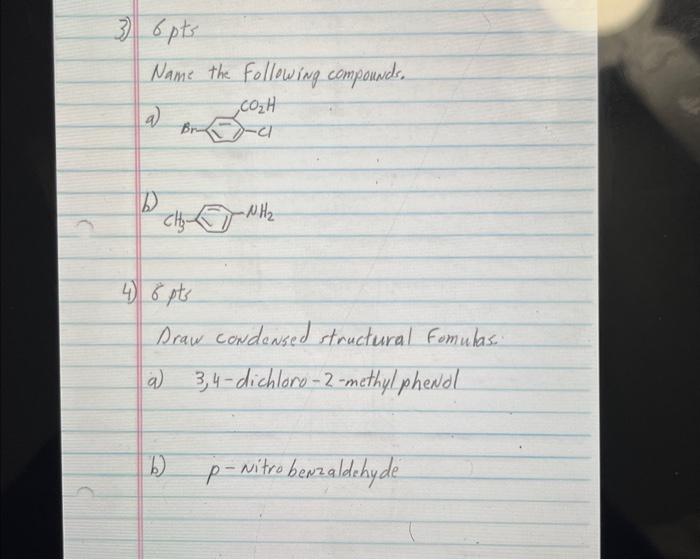 3) 6 pts
Name the following compounds.
a) CO2H
Br Cl
b)
CH3 NH2
4) 6 pts
Draw condensed structural Fomulas.
a) 3,4-dichloro-2-methylphenol
b) p-nitrobenzaldehyde